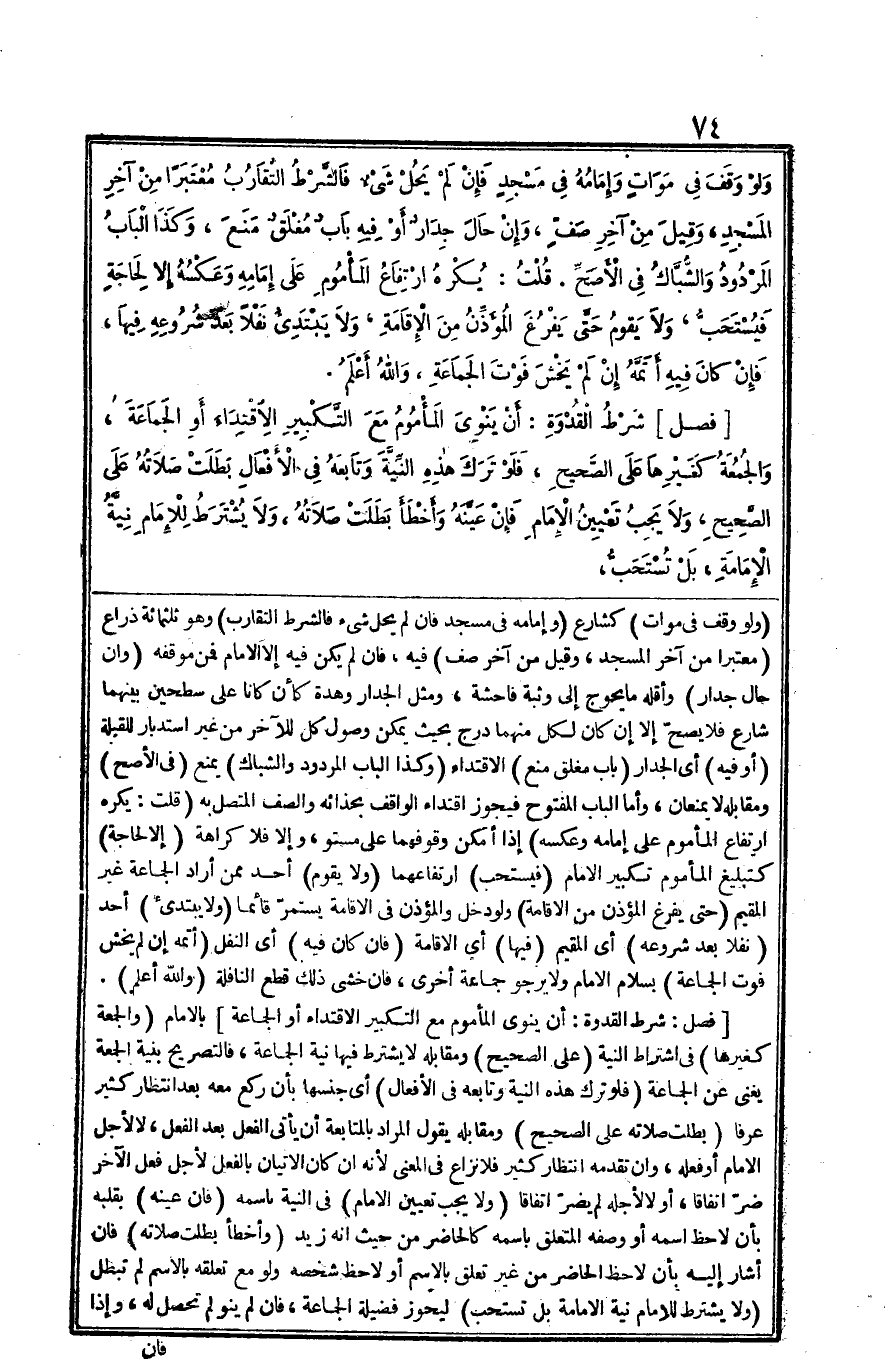 ٧٤
وَلَوْ وَقَفَ فِى مَوَاتٍ وَإِمَامُهُ فِى مَسْجِدٍ فَإِنْ لَمْ يَحُلْ شَىْءٌ فَالشَّرْطُ التَّقَارُبُ مُعْتَبَرًا مِنْ آخِرِ
المَسْجِدِ ، وَقِيلَ مِنْ آخِرِ صَفٍّ ، وَإِنْ حَالَ جِدَارٌ أَوْ فِيهِ بَابٌ مُغْلَقٌ مَنَعَ ، وَكَذَا الْبَابُ
المَرْدُودُ وَالشُّبَّاكُ فِى الْأَصَحِّ . قُلْتُ : يُكْرَهُ ارْتِفَاعُ المَأْمُومِ عَلَى إِمَامِهِ وَعَكْسُهُ إِلَّا لِحَاجَةٍ
فَيُسْتَحَبُّ ، وَلَا يَقُومُ حَتَّى يَفْرُغَ المُؤَذِّنُ مِنَ الْإِقَامَةِ ، وَلَا يَبْتَدِئُ نَفْلًا بَعْدَ شُرُوعِهِ فِيهَا ،
فَإِنْ كَانَ فِيهِ أَتَمَّهُ إِنْ لَمْ يَخْشَ فَوْتَ الجَمَاعَةِ ، وَاللهُ أَعْلَمُ .
[ فصل ] شَرْطُ الْقُدْوَةِ : أَنْ يَنْوِىَ المَأْمُومُ مَعَ التَّكْبِيرِ الِاقْتِدَاءَ أَوِ الجَمَاعَةَ ،
وَالجُمُعَةُ كَغَيْرِهَا عَلَى الصَّحِيحِ ، فَلَوْ تَرَكَ هَذِهِ النِّيَّةَ وَتَابَعَهُ فِى الْأَفْعَالِ بَطَلَتْ صَلَاتُهُ عَلَى
الصَّحِيحِ ، وَلَا يَجِبُ تَعْيِينُ الْإِمَامِ فَإِنْ عَيَّنَهُ وَأَخْطَأَ بَطَلَتْ صَلَاتُهُ ، وَلَا يُشْتَرَطُ لِلْإِمَامِ نِيَّةُ
الْإِمَامَةِ ، بَلْ تُسْتَحَبُّ ،
(ولو وقف فى موات) كشارع (وإمامه فى مسجد فان لم يحل شىء فالشرط التقارب) وهو ثلثمائة ذراع
(معتبرا من آخر المسجد ، وقيل من آخر صف) فيه ، فان لم يكن فيه إلا الامام فمن موقفه (وان
حال جدار) وأقله مايحوج إلى وثبة فاحشة ، ومثل الجدار وهدة كأن كانا على سطحين بينهما
شارع فلايصحّ إلا إن كان لكل منهما درج بحيث يمكن وصول كل للآخر من غير استدبار للقبلة
(أو فيه) أى الجدار (باب مغلق منع) الاقتداء (وكذا الباب المردود والشباك) يمنع (فى الأصح)
ومقابله لايمنعان ، وأما الباب المفتوح فيجوز اقتداء الواقف بحذائه والصف المتصل به (قلت : يكره
ارتفاع المأموم على إمامه وعكسه) إذا أمكن وقوفهما على مستو ، وإلا فلا كراهة (إلا لحاجة)
كتبليغ المأموم تكبير الامام (فيستحب) ارتفاعهما (ولا يقوم) أحد ممن أراد الجماعة غير
المقيم (حتى يفرغ المؤذن من الاقامة) ولودخل والمؤذن فى الاقامة يستمرّ قائما (ولايبتدئ) أحد
(نفلا بعد شروعه) أى المقيم (فيها) أي الاقامة (فان كان فيه) أى النفل (أتمه إن لم يخش
فوت الجماعة) بسلام الامام ولايرجو جماعة أخرى ، فان خشى ذلك قطع النافلة (والله أعلم) .
[فصل : شرط القدوة : أن ينوى المأموم مع التكبير الاقتداء أو الجماعة] بالامام (والجمعة
كغيرها) فى اشتراط النية (على الصحيح) ومقابله لايشترط فيها نية الجماعة ، فالتصريح بنية الجمعة
يغنى عن الجماعة (فلو ترك هذه النية وتابعه فى الأفعال) أى جنسها بأن ركع معه بعد انتظار كثير
عرفا (بطلت صلاته على الصحيح) ومقابله يقول المراد بالمتابعة أن يأتى الفعل بعد الفعل ، لالأجل
الامام أو فعله ، وان تقدمه انتظار كثير فلانزاع فى المعنى لأنه ان كان الاتيان بالفعل لأجل فعل الآخر
ضرّ اتفاقا ، أو لالأجله لم يضرّ اتفاقا (ولا يجب تعيين الامام) فى النية باسمه (فان عينه) بقلبه
بأن لاحظ اسمه أو وصفه المتعلق باسمه كالحاضر من حيث انه زيد (وأخطأ بطلت صلاته) فان
أشار إليه بأن لاحظ الحاضر من غير تعلق بالاسم أو لاحظ شخصه ولو مع تعلقه بالاسم لم تبطل
(ولا يشترط للامام نية الامامة بل تستحب) ليحوز فضيلة الجماعة ، فان لم ينو لم تحصل له ، وإذا
فان